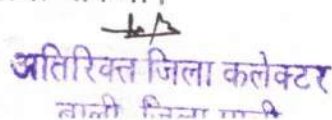 अतिरिक्त जिला कलेक्टर
बाली जिला पाली